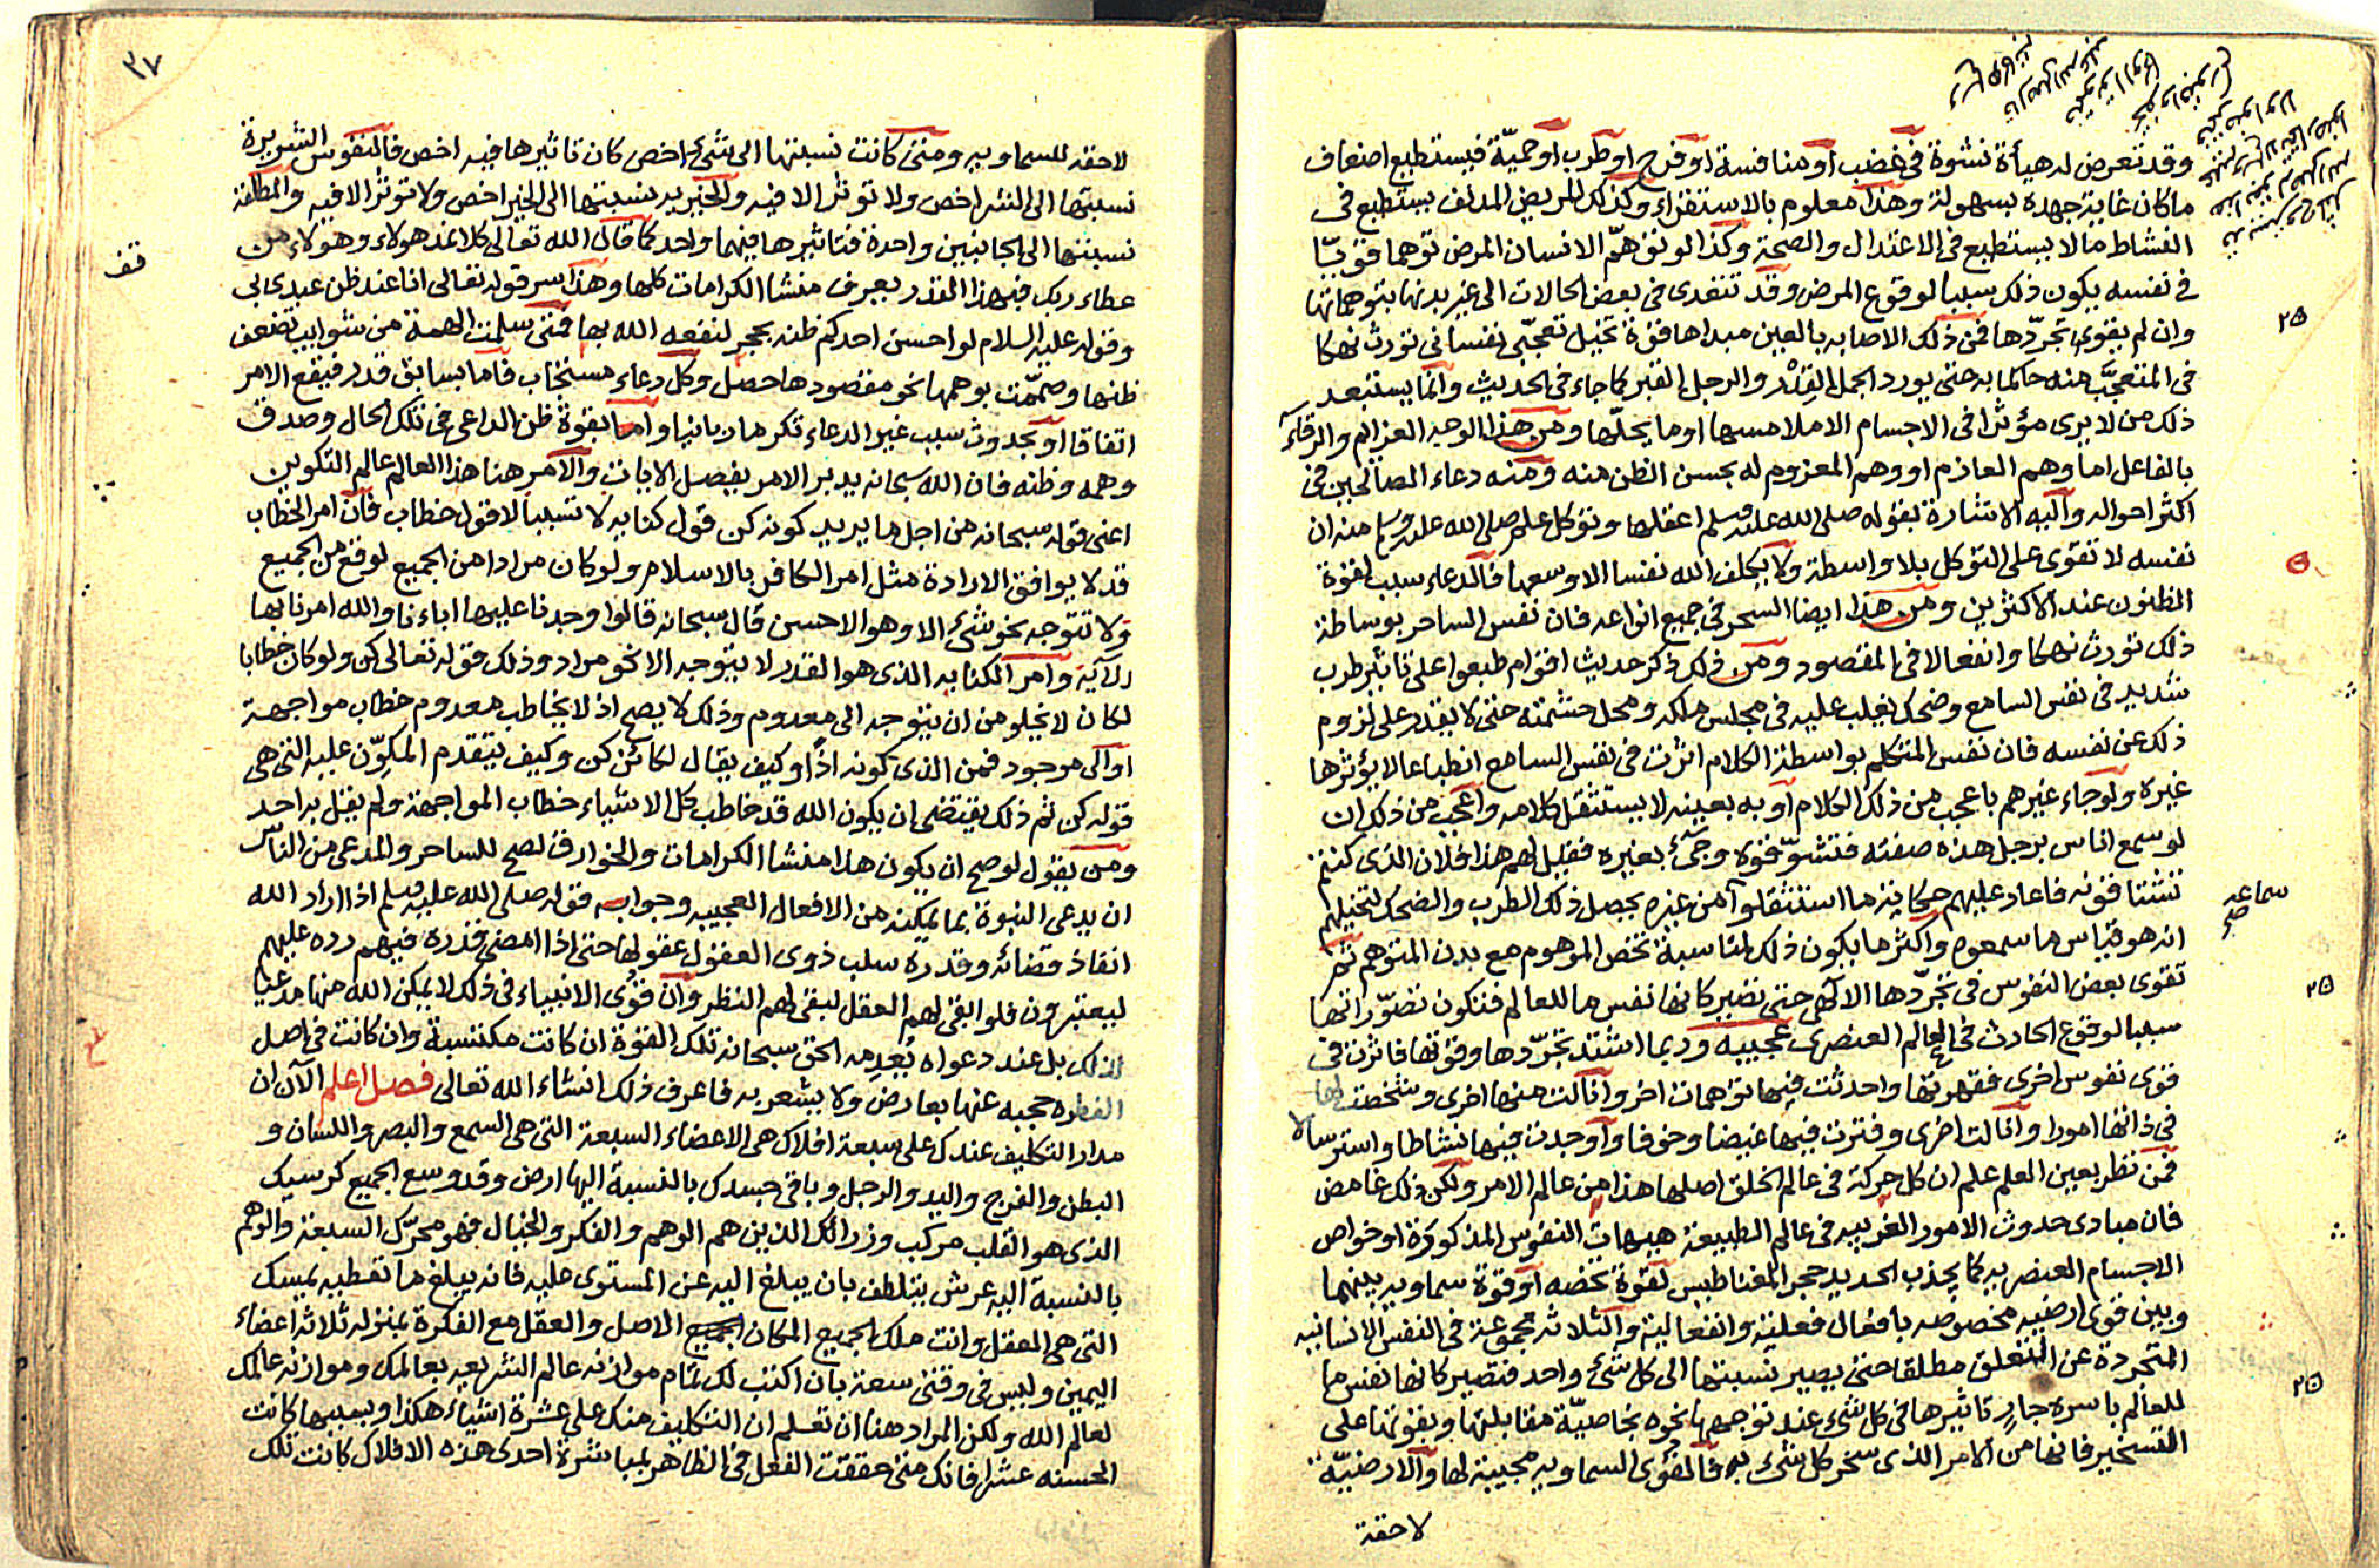 وقد تعرض له هيأة نشوة في غضب او منافسة او فرح او طرب او حميّة فيستطيع اضعاف
ما كان غاية جهده بسهولة وهذا معلوم بالاستقراء وكذلك المريض المدنف يستطيع في
النشاط ما لا يستطيع في الاعتدال والصحة وكذا لو توهّم الانسان المرض توهما قويّا
في نفسه يكون ذلك سببا لوقوع المرض وقد تتعدى في بعض الحالات الى غير بدنها بتوهماتها
وان لم يقوى تجرّدها فمن ذلك الاصابه بالعين مبداها قوة تخيل تعجبّى نفسانى تورث نهكا
في المتعجَّب منه حاكما به حتى يورد الجمل القِدْر والرجل القبر كما جاء في الحديث وانما يستبعد
ذلك من لا يرى مؤثرا في الاجسام الا ملامسها او ما يحلّها ومن هذا الوجه العزايم والرقاء
بالفاعل اما وهم العازم او وهم المعزوم له بحسن الظن منه ومنه دعاء الصالحين في
اكثر احواله واليه الاشارة بقوله صلى الله عليه وسلم اعقلها وتوكل علم صلى الله عليه وسلم منه ان
نفسه لا تقوى على التوكل بلا واسطة ولا يكلف الله نفسا الا وسعها فالدعاء سبب لقوة
المظنون عند الاكثرين ومن هذا ايضا السحر في جميع انواعه فان نفس الساحر بوساطة
ذلك تورث نهكا وانفعالا في المقصود ومن ذلك ذكر حديث اقوام طبعوا على تاثير طرب
شديد في نفس السامع وضحك يغلب عليه في مجلس ملكه ومحل حشمته حتى لا يقدر على لزوم
ذلك عن نفسه فان نفس المتكلم بواسطة الكلام اثرت في نفس السامع انطباعا لا يؤثرها
غيره ولو جاء غيرهم باعجب من ذلك الكلام او به بعينه لا يستثقل كلامه واعجب من ذلك ان
لو سمع اناس برجل هذه صفته فتشوّقوه وجئ بغيره فقيل لهم هذا فلان الذى كنتم
تشتاقونه فاعاد عليهم حكاية ما استثقلوا من غيره يحصل ذلك الطرب والضحك لتخيلهم
انه هو قياس ما سمعوه واكثر ما يكون ذلك لمناسبة تخص الموهوم مع بدن المتوهم ثم
تقوى بعض النفوس في تجرّدها الالهى حتى تصير كانها نفس ما للعالم فتكون تصوّراتها
سببا لوقوع الحادث في العالم العنصرى عجيبه وربما اشتد تجرّدها وقوتها فاثرت في
قوى نفوس اخرى فقهرتها واحدثت فيها توهمات اخر وانالت منها اخرى وشخصت لها
في ذاتها امورا وانالت اخرى وفترت فيها غيضا وخوفا واوجدت فيها نشاطا واسترسالا
فمن نظر بعين العلم علم ان كل حركة في عالم الخلق اصلها هذا من عالم الامر ولكن ذلك غامض
فان مبادى حدوث الامور الغريبه في عالم الطبيعة هيهات النفوس المذكورة او خواص
الاجسام العنصريه كما يجذب الحديد حجر المغناطيس لقوة تخصه او قوة سماويه بينهما
وبين قوى ارضيه مخصوصه بافعال فعلية وانفعالية والثلاثه مجموعة في النفس الانسانيه
المتجردة عن التعلق مطلقا حتى يصير نسبتها الى كل شئ واحد فتصير كانها نفس ما
للعالم باسره جارٍ تاثيرها في كل شئ عند توجهها نحوه بخاصيّة مقابلتها وبقوتها على
التسخير فانها من الامر الذى سخر كل شئ به فالقوى السماويه مجيبة لها والارضيّة
لاحقة
سماعه صح
٢٥
٢٥
٢٥
٣٧
لاحقه للسماويه ومتى كانت نسبتها الى شئ اخص كان تاثيرها فيه اخص فالنفوس الشريرة
نسبتها الى الشر اخص ولا توثر الا فيه والخيريه نسبتها الى الخير اخص ولا توثر الا فيه والمطلقة
نسبتها الى الجانبين واحدة فتاثيرها فيهما واحد كما قال الله تعالى كلا نمد هولاء وهولاء من
عطاء ربك فبهذا القدر يعرف منشا الكرامات كلها وهذا سر قوله تعالى انا عند ظن عبدى بى
وقوله عليه السلام لو احسن احدكم ظنه بحجر لنفعه الله بها فمتى سلمت الهمة من شوايب تضعف
ظنها وصمّمت بوهمها نحو مقصودها حصل وكل دعاء مستجاب فاما بسابق قدر فيقع الامر
اتفاقا او بحدوث سبب غير الدعاء تكرما ربانيا واما بقوة ظن الداعى في تلك الحال وصدق
وهمه وظنه فان الله سبحانه يدبر الامر يفصل الايات والامر هنا هذا العالم عالم التكوين
اعنى قوله سبحانه من اجل ما يريد كونه كن قول كنايه لا تسببا لا قول خطاب فان امر الخطاب
قد لا يوافق الارادة مثل امر الكافر بالاسلام ولو كان مرادا من الجميع لوقع من الجميع
ولا تتوجه نحو شئ الا وهو الاحسن قال سبحانه قالوا وجدنا عليها اباءنا والله امرنا بها
الآية وامر الكنايه الذى هو القدر لا يتوجه الا نحو مراد وذلك قوله تعالى كن ولو كان خطابا
لكان لا يخلو من ان يتوجه الى معدوم وذلك لا يصح اذ لا يخاطب معدوم خطاب مواجهة
او الى موجود فمن الذى كونه اذًا وكيف يقال لكائن كن وكيف يتقدم المكوّن عليه التى هى
قوله كن ثم ذلك يقتضى ان يكون الله قد خاطب كل الاشياء خطاب المواجهة ولم يقل به احد
ومن يقول لو صح ان يكون هذا منشا الكرامات والخوارق لصح للساحر والمدعى من الناس
ان يدعى النبوة بما يمكنه من الافعال العجيبه وجوابه قوله صلى الله عليه وسلم اذا اراد الله
انفاذ قضائه وقدره سلب ذوى العقول عقولها حتى اذا امضى قدره فيهم رده عليهم
ليعتبرون فلو ابقى لهم العقل لبقى لهم النظر وان قوى الانبياء في ذلك لا يمكن الله منها مدعيا
لذلك بل عند دعواه يُعدِمه الحق سبحانه تلك القوة ان كانت مكتسبة وان كانت في اصل
الفطره حجبه عنها بعارض ولا يشعر به فاعرف ذلك انشاء الله تعالى فصل اعلم الآن ان
مدار التكليف عندك على سبعة افلاك هى الاعضاء السبعة التى هى السمع والبصر واللسان و
البطن والفرج واليد والرجل وباقى جسدك بالنسبة اليها ارض وقد وسع الجميع كرسيك
الذى هو القلب مركب وزرائك الذين هم الوهم والفكر والخيال فهو محرّك السبعة والوهم
بالنسبة اليه عرش يتلطف بان يبلغ اليه عن المستوى عليه فانه يبلغ ما تعطيه يمسك
التى هى العقل وانت ملك لجميع المكان الاصل والعقل مع الفكرة بمنزله ثلاثه اعضاء
اليمين وليس في وقتى سعة بان اكتب لك تمام موازنه عالم الشريعه بعالمك وموازنه عالمك
لعالم الله ولكن المراد هنا ان تعلم ان التكليف منك على عشرة اشياء هكذا وبسببها كانت
الحسنه عشرا فانك متى حققت الفعل في الظاهر بمباشرة احدى هذه الافلاك كانت تلك
قف